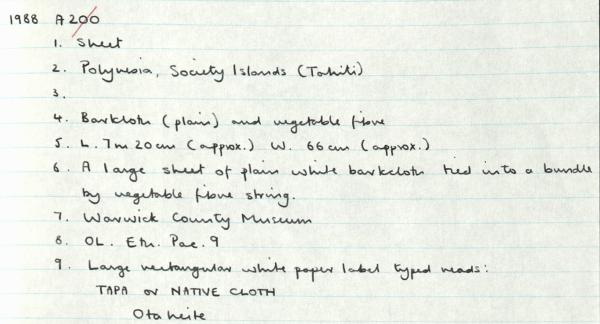 1988 A 200
1. Sheet
2. Polynesia, Society Islands (Tahiti)
3.
4. Barkcloth (plain) and vegetable fibre
5. L. 7m 20cm (approx.) W. 66cm (approx.)
6. A large sheet of plain white barkcloth tied into a bundle
by vegetable fibre string.
7. Warwick County Museum
8. OL. Eth. Pac. 9
9. Large rectangular white paper label typed reads:
TAPA or NATIVE CLOTH
Otaheite